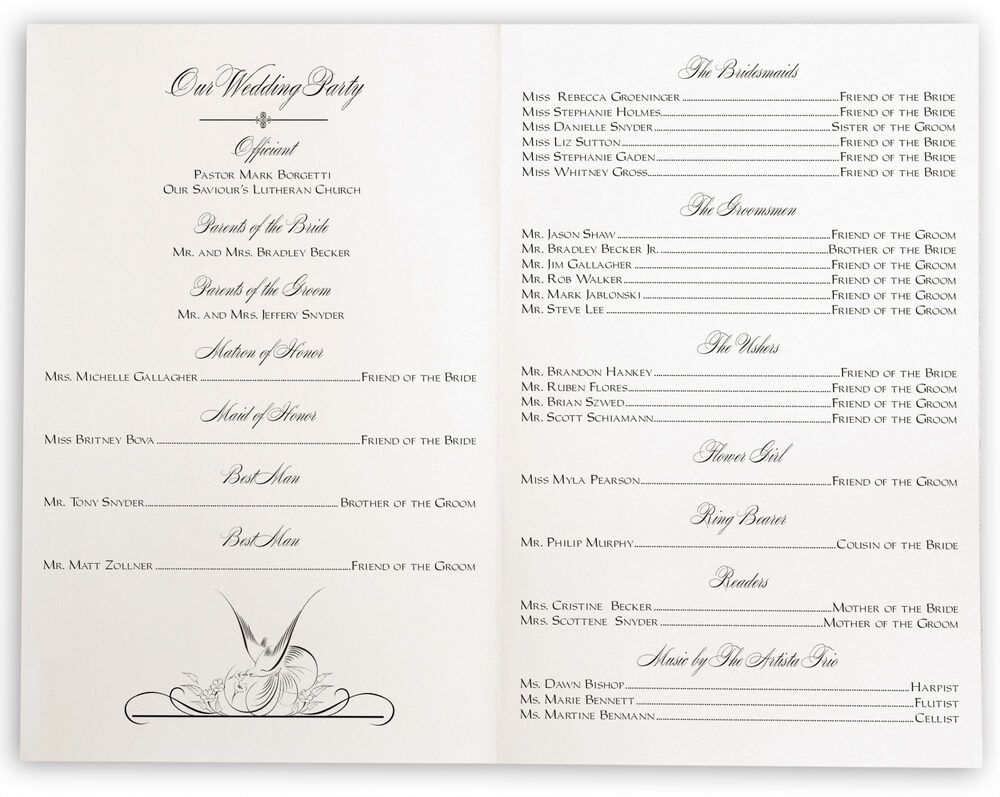 Our Wedding Party
Officiant
Pastor Mark Borgetti
Our Saviour's Lutheran Church
Parents of the Bride
Mr. and Mrs. Bradley Becker
Parents of the Groom
Mr. and Mrs. Jeffery Snyder
Matron of Honor
Mrs. Michelle Gallagher ........ Friend of the Bride
Maid of Honor
Miss Britney Bova ........ Friend of the Bride
Best Man
Mr. Tony Snyder ........ Brother of the Groom
Best Man
Mr. Matt Zollner ........ Friend of the Groom
The Bridesmaids
Miss Rebecca Groeninger ........ Friend of the Bride
Miss Stephanie Holmes ........ Friend of the Bride
Miss Danielle Snyder ........ Sister of the Groom
Miss Liz Sutton ........ Friend of the Bride
Miss Stephanie Gaden ........ Friend of the Bride
Miss Whitney Gross ........ Friend of the Bride
The Groomsmen
Mr. Jason Shaw ........ Friend of the Groom
Mr. Bradley Becker Jr. ........ Brother of the Bride
Mr. Jim Gallagher ........ Friend of the Groom
Mr. Rob Walker ........ Friend of the Groom
Mr. Mark Jablonski ........ Friend of the Groom
Mr. Steve Lee ........ Friend of the Groom
The Ushers
Mr. Brandon Hankey ........ Friend of the Bride
Mr. Ruben Flores ........ Friend of the Groom
Mr. Brian Szwed ........ Friend of the Groom
Mr. Scott Schiamann ........ Friend of the Groom
Flower Girl
Miss Myla Pearson ........ Friend of the Groom
Ring Bearer
Mr. Philip Murphy ........ Cousin of the Bride
Readers
Mrs. Cristine Becker ........ Mother of the Bride
Mrs. Scottene Snyder ........ Mother of the Groom
Music by The Artista Trio
Ms. Dawn Bishop ........ Harpist
Ms. Marie Bennett ........ Flutist
Ms. Martine Benmann ........ Cellist